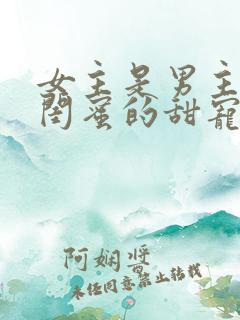 女主是男主
闺蜜的甜宠
阿娴酱
未经同意禁止转载